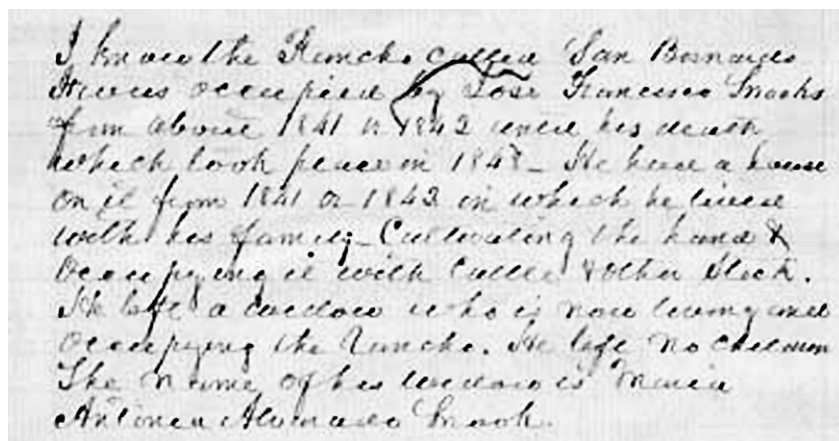 I know the Rancho called San Bernardo
It was occupied by Jose Francisco Snooks
from about 1841 or 1842 until his death
which took place in 1848 - He had a house
on it from 1841 or 1842 in which he lived
with his family - Cultivating the land &
Occupying it with Cattle & other Stock.
He left a widow who is now living and
Occupying the Rancho. He left no children
The name of his widow is Maria
Antonia Alvarado Snook.